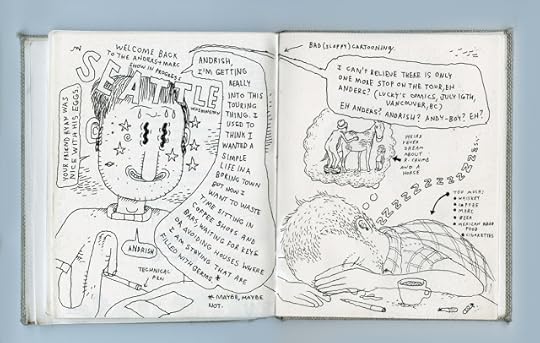 WELCOME BACK
TO THE ANDERS+MARC
SHOW IN PROGRESS
SEATTLE
WASHINGTON
YOUR FRIEND RYAN WAS
NICE WITH HIS EGGS.
ANDRISH,
I'M GETTING
REALLY
INTO THIS
TOURING
THING. I
USED TO
THINK I
WANTED A
SIMPLE
LIFE IN A
BORING TOWN
BUT NOW I
WANT TO WASTE
TIME SITTING IN
COFFEE SHOPS AND
BARS WAITING FOR KEYS
OR AVOIDING HOUSES WHERE
I AM STAYING THAT ARE
FILLED WITH GERMS *
* MAYBE, MAYBE
NOT.
ANDRISH
TECHNICAL
PEN
BAD (SLOPPY) CARTOONING.
I CAN'T BELIEVE THERE IS ONLY
ONE MORE STOP ON THE TOUR, EH
ANDERS? (LUCKY'S COMICS, JULY 16TH,
VANCOUVER, BC)
EH ANDERS? ANDRISH? ANDY-BOY? EH?
WEIRD
FEVER
DREAM
ABOUT
R. CRUMB
AND A
HORSE
ZZZZZZZZZZZZ
YOU MISS:
WHISKEY
COFFEE
MARC
BEER
MEXICAN
FOOD
CIGARETTES